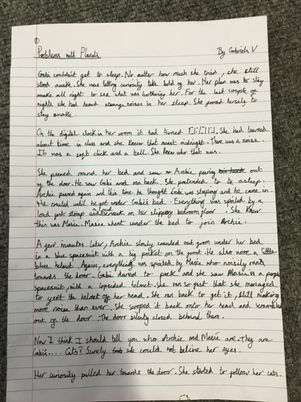 Problems with Planets By Gabriela V
Gabi couldn't get to sleep. No matter how much she tried, she still
stood awake. She was letting curiosity take hold of her. Her plan was to stay
awake all night to see what was bothering her. For the last couple of
nights she had heard strange noises in her sleep. She forced herself to
stay awake.
On the digital clock in her room it had turned She had learned
about time in class and she knew that meant midnight. There was a noise.
It was a soft click and a bell. She knew who that was.
She peered round her bed and saw Archie out
of the door. He saw Gabi and ran back. She pretended to be asleep.
Archie paused again and this time he thought Gabi was sleeping and he came in.
He until he got under Gabi's bed. Everything was spoiled by a
loud on her slippery bedroom floor. She knew
this was Maxie. Maxie went under the bed to join Archie.
A few minutes later, Archie slowly crawled out from under her bed
in a blue spacesuit with a big pocket on the front. He also wore a little
blue helmet. Again, everything was spoiled by Maxie who noisily ran
towards the door. Gabi dared to peek and she saw Maxie in a purple
spacesuit with a lopsided helmet. She ran so fast that she managed
to the helmet off her head. She ran back to get it, still making
more noise than ever. She scooped it back onto her head and
out of the door. The door quietly closed behind them.
Now I think I should tell you who Archie and Maxie are. They are
Cats? Surely she could not believe her eyes.
Her curiosity pulled her towards the door. She started to follow her cats.